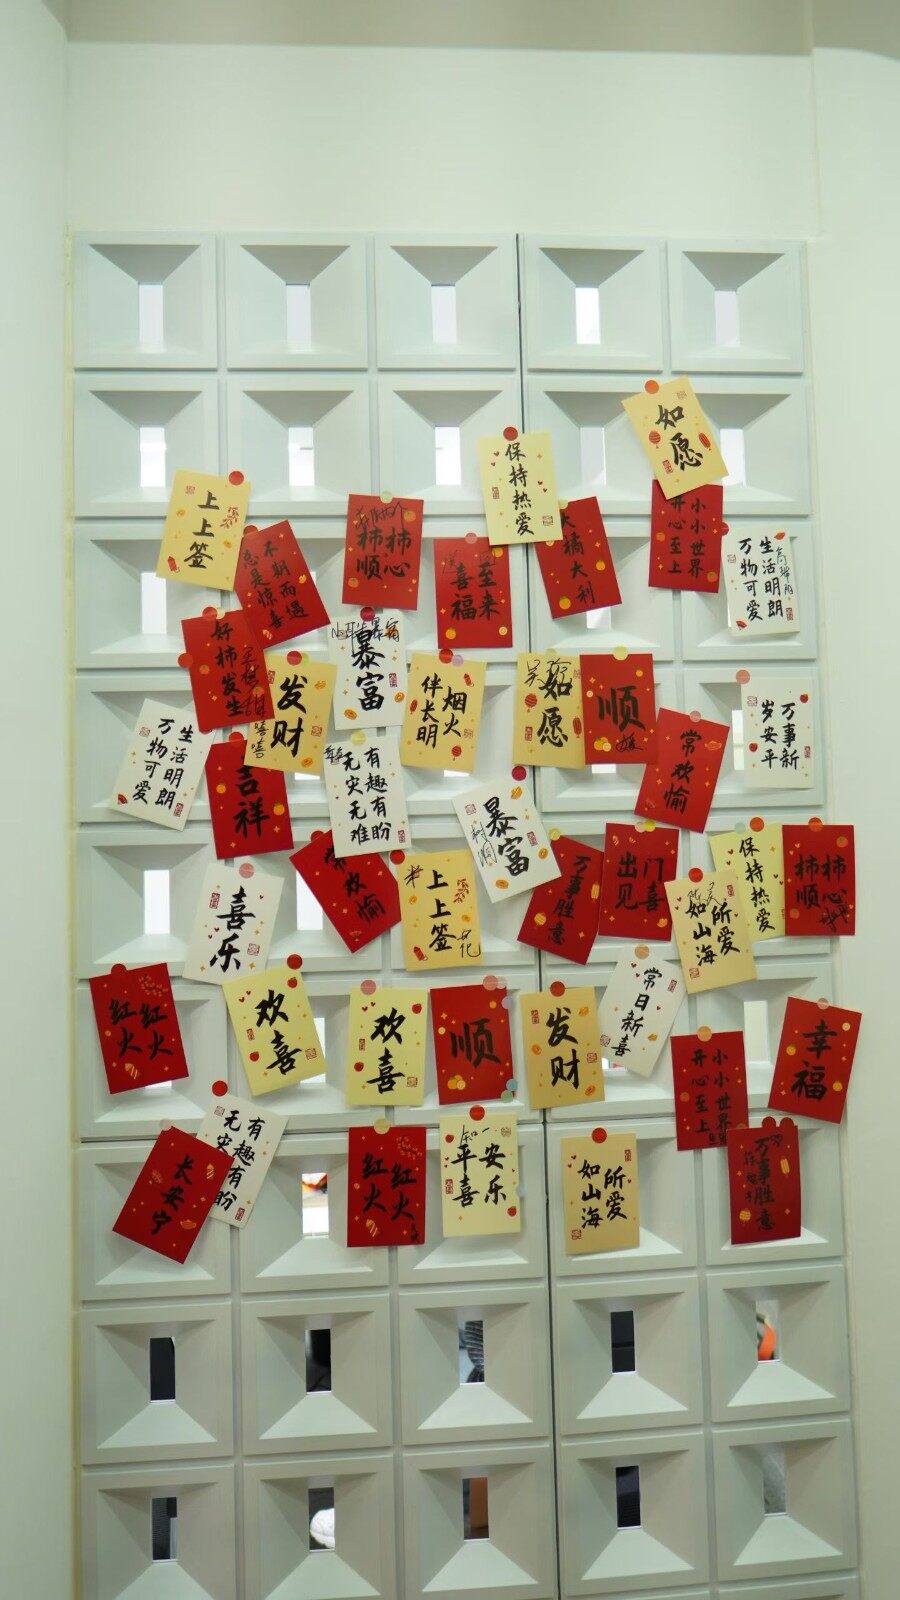 如愿
保持热爱
上上签
不期而遇
总是惊喜
柿柿
顺心
至来
喜福
大橘大利
小小世界
开心至上
生活明朗
万物可爱
好柿发生
暴富
发财
烟火
伴长明
如愿
顺
常欢愉
万事新
岁安平
生活明朗
万物可爱
吉祥
有趣有盼
无灾无难
暴富
常欢愉
上上签
万事胜意
出门
见喜
所爱
如山海
保持热爱
柿柿
顺心
喜乐
红红
火火
欢喜
欢喜
顺
发财
常日新喜
小小世界
开心至上
幸福
有趣有盼
无灾
长安宁
红红
火火
安乐
平喜
所爱
如山海
万事胜意